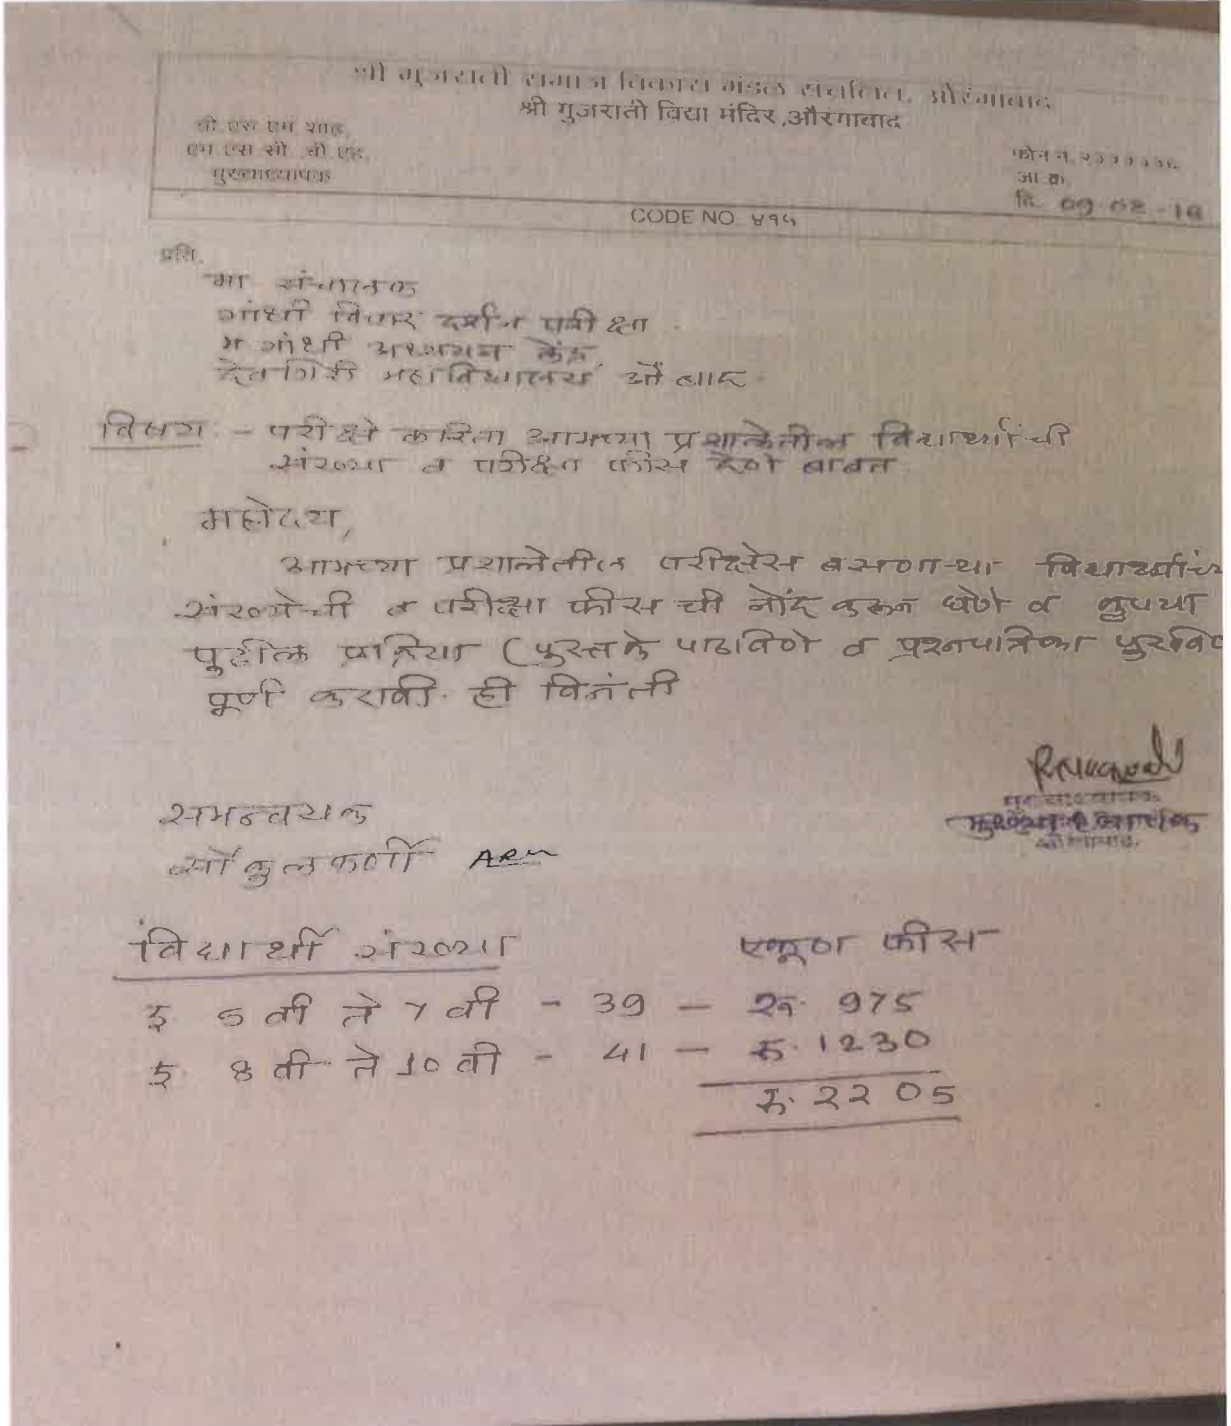 श्री गुजराती समाज विकास मंडल संचलित, औरंगाबाद
श्री गुजराती विद्या मंदिर,औरंगाबाद
एम एस सी बी एड,
मुख्याध्यापक
फोन नं
जा क्र
दि.
CODE NO ४१५
प्रति,
मा संचालक
गांधी विचार दर्शन परीक्षा
म गांधी अध्ययन केंद्र,
देवगिरी महाविद्यालय औ बाद.
विषय :- परीक्षे करिता आमच्या प्रशालेतील विद्यार्थ्यांची
संख्या व परीक्षा फीस देणे बाबत
महोदय,
आमच्या प्रशालेतील परीक्षेस बसणाऱ्या
संख्येची व परीक्षा फीस ची नोंद करून घेणे व कृपया
पुढील प्रक्रिया (पुस्तके पाठविणे व प्रश्नपत्रिका
पूर्ण करावी. ही विनंती
समन्वयक
सौ कुलकर्णी
मुख्याध्यापक
विद्यार्थी संख्या एकूण फीस
इ 5 वी ते 7 वी - 39 - रु. 975
इ. 8 वी ते 10 वी - 41 - रु. 1230
रु. 2205